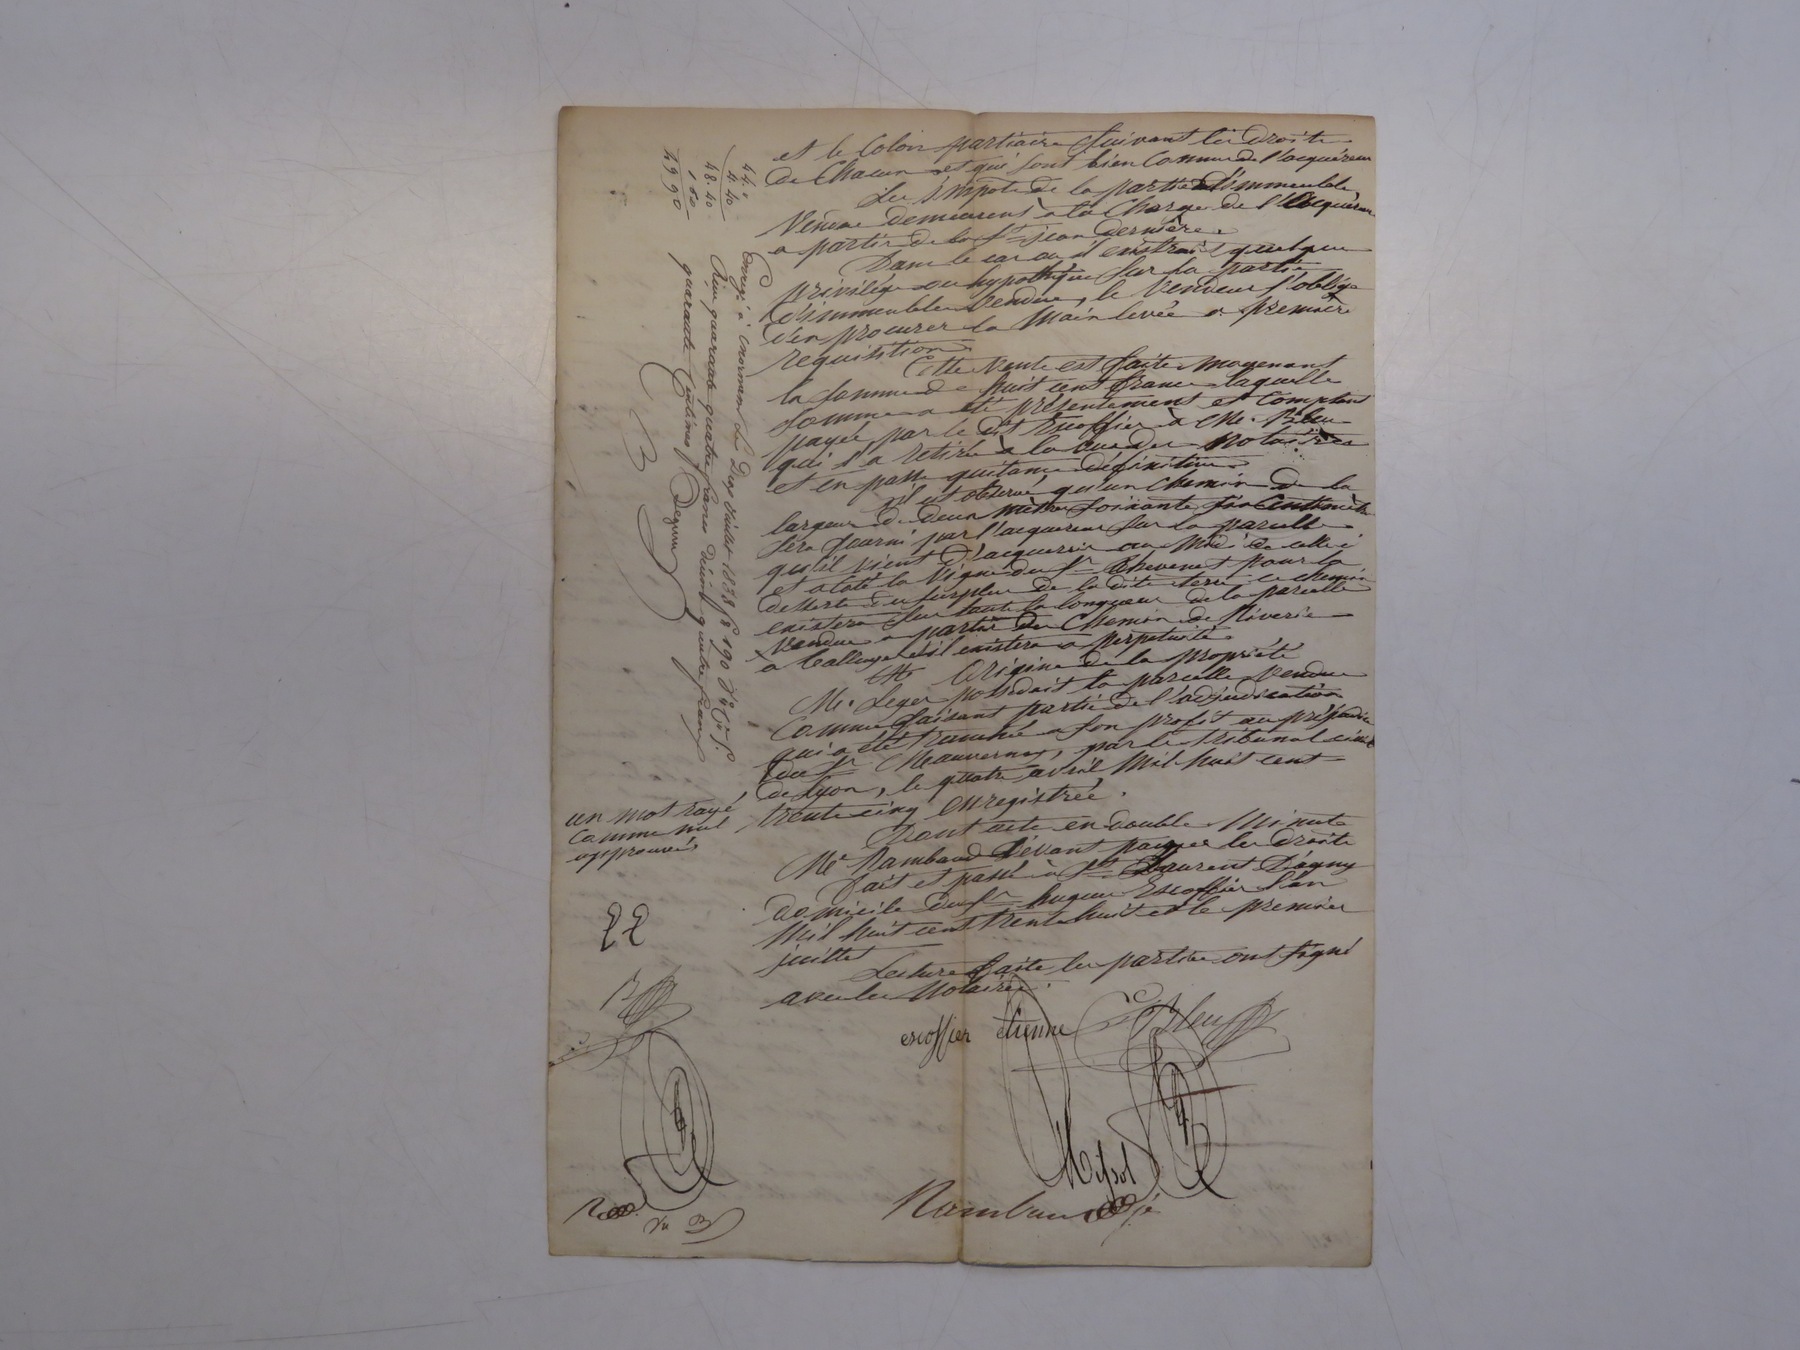 et le Colon partiaire suivant les droits
de Chacun et qui sont bien Connus de l'acquéreur
Les impots de la partie d'immeuble
Vendue demeurent à la Charge de l'acquéreur
a partir de la St jean dernière
Dans le cas ou il existrait quelque
privilége ou hypothéque sur la partie
d'immeuble Vendue, le Vendeur s'oblige
d'en procurer la Main levée a premiere
requisition
Cette vente est faite moyenant
la somme de huit cent francs laquelle
somme a été présentement et Comptant
payée par le dit Escoffier à Mr. Bleu
qui l'a retirée à la vue des Notaires
et en passe quitance définitive
il est observé qu'un chemin de la
largeur de deux mètres soixante six Centimètres
sera fourni par l'acquereur sur la parcelle
qu'il vient d'acquerrir au Midi de celle ci
et a coté la Vigne du Sr Thevenet pour la
desserte du surplus de la dite terre ce chemin
existera sur toute la longueur de la parcelle
Vendue a partir du Chemin de Riverie
a et il existera a perpetuité
Origine de la propriété
Mr. Leger possedait la parcelle Vendue
Comme faisant partie de l'adjudication
qui a été tranchée a son profit au préjudice
du Sr Mauvernay, par le tribunal civil
de Lyon, le quatre avril Mil huit cent
trente cinq enregistrée.
Dont acte en double Minute
Me Rambaud devant payer les droits
Fait et passé à St Laurent D'agny
domicile du Sr hugue Escoffier L'an
Mil huit cent trente huit et le premier
juillet
Lecture faite les parties ont signé
avec les Notaires.
escoffier etienne Bleu
Missol
Rambaud
un mot rayé
Comme nul
approuvés
44.
4.40
48.40
1.50
49.90
Enregé à Mornant Le Dix Juillet 1838 f° 190
Reçu quarante quatre francs décime quatre francs
quarante Centimes